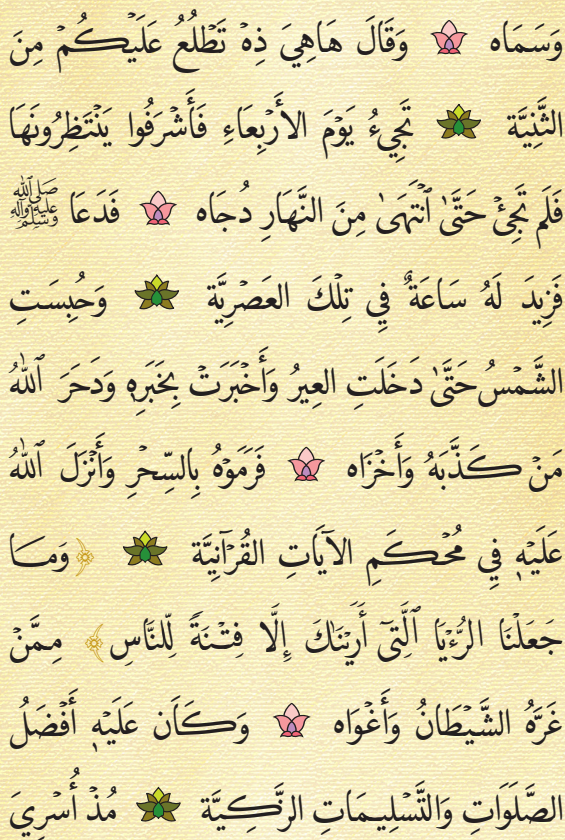 وَسَمَاه وَقَالَ هَاهِيَ ذِهْ تَطْلُعُ عَلَيْكُمْ مِنَ
الثَّنِيَّة تَجِيءُ يَوْمَ الأَرْبِعَاءِ فَأَشْرَفُوا يَنْتَظِرُونَهَا
فَلَم تَجِئْ حَتَّىٰ ٱنْتَهَىٰ مِنَ النَّهَارِ دُجَاه فَدَعَا ﷺ
فَزِيدَ لَهُ سَاعَةٌ فِي تِلْكَ العَصْرِيَّة وَحُبِسَتِ
الشَّمْسُ حَتَّىٰ دَخَلَتِ العِيرُ وَأَخْبَرَتْ بِخَبَرِهِ وَدَحَرَ ٱللهُ
مَنْ كَذَّبَهُ وَأَخْزَاه فَرَمَوْهُ بِالسِّحْرِ وَأَنْزَلَ ٱللهُ
عَلَيْهِ فِي مُحْكَمِ الآيَاتِ القُرْآنِيَّة ﴿وَمَا
جَعَلْنَا الرُّءْيَا ٱلَّتِيٓ أَرَيْنَاكَ إِلَّا فِتْنَةً لِّلنَّاسِ﴾ مِمَّنْ
غَرَّهُ الشَّيْطَانُ وَأَغْوَاه وَكَانَ عَلَيْهِ أَفْضَلُ
الصَّلَوَاتِ وَالتَّسْلِيمَاتِ الزَّكِيَّة مُذْ أُسْرِيَ